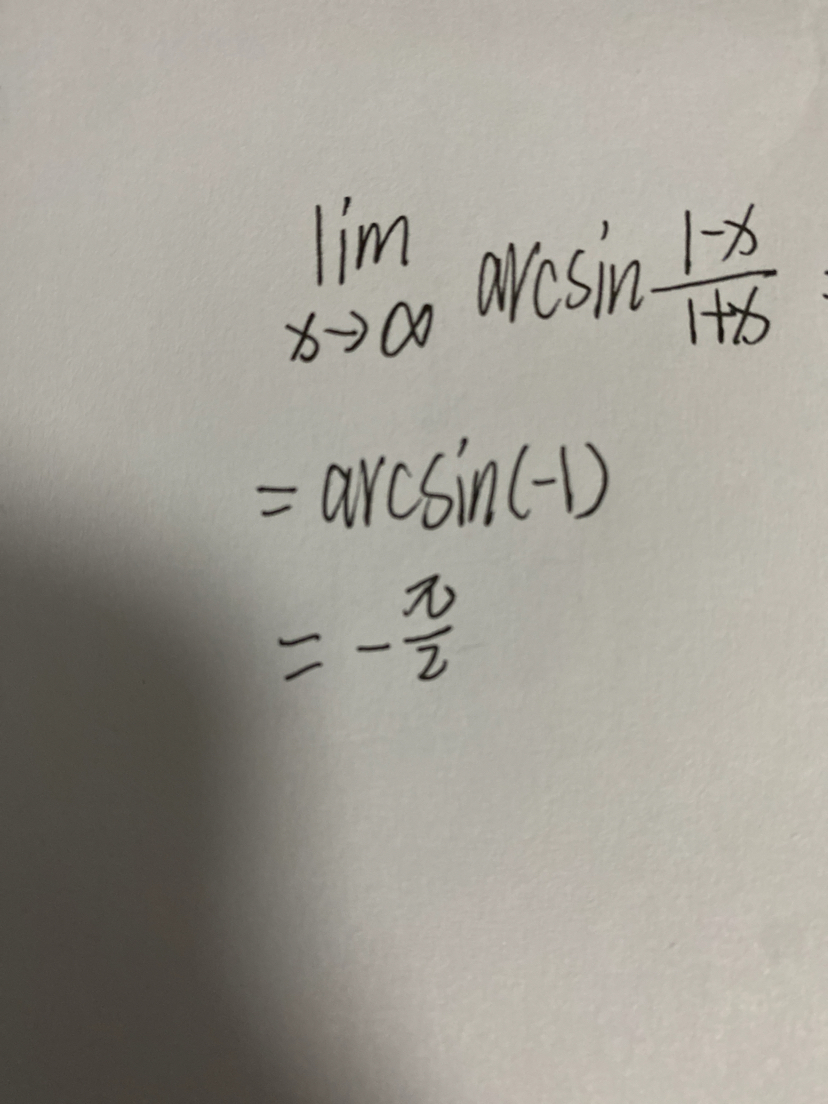 lim x→∞ arcsin (1-x)/(1+x) =
= arcsin(-1)
= -π/2